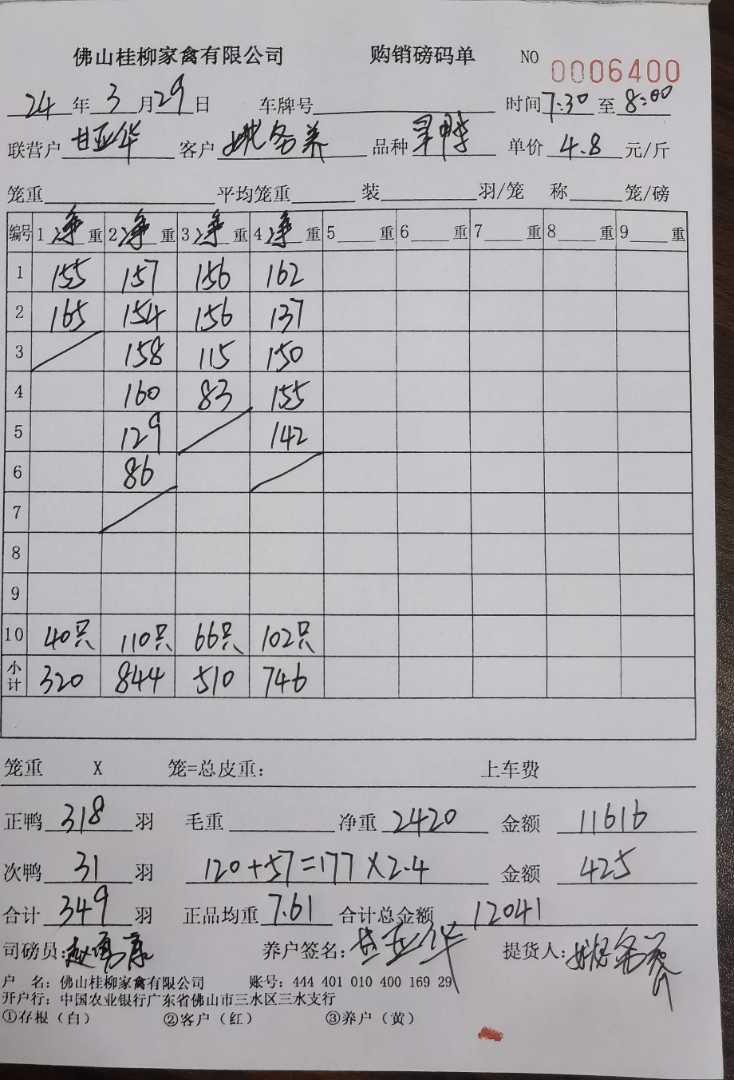 佛山桂柳家禽有限公司 购销磅码单 NO 0006400
24年3月29日 车牌号 时间7:30至8:00
联营户甘亚华 客户 务养 品种 单价4.8元/斤
笼重 平均笼重 装 羽/笼 称 笼/磅
编号 1净重 2净重 3净重 4净重 5 重 6 重 7 重 8 重 9 重
1 155 157 156 162
2 165 154 156 137
3 158 115 150
4 160 83 155
5 129 142
6 86
7
8
9
10 40只 110只 66只 102只
小计 320 844 510 746
笼重 X 笼=总皮重: 上车费
正鸭318羽 毛重 净重2420 金额11616
次鸭31羽 120+57=177×2.4 金额425
合计349羽 正品均重7.61 合计总金额12041
司磅员: 养户签名:甘亚华 提货人:
户 名: 佛山桂柳家禽有限公司 账号: 444 401 010 400 169 29
开户行: 中国农业银行广东省佛山市三水区三水支行
①存根（白） ②客户（红） ③养户（黄）